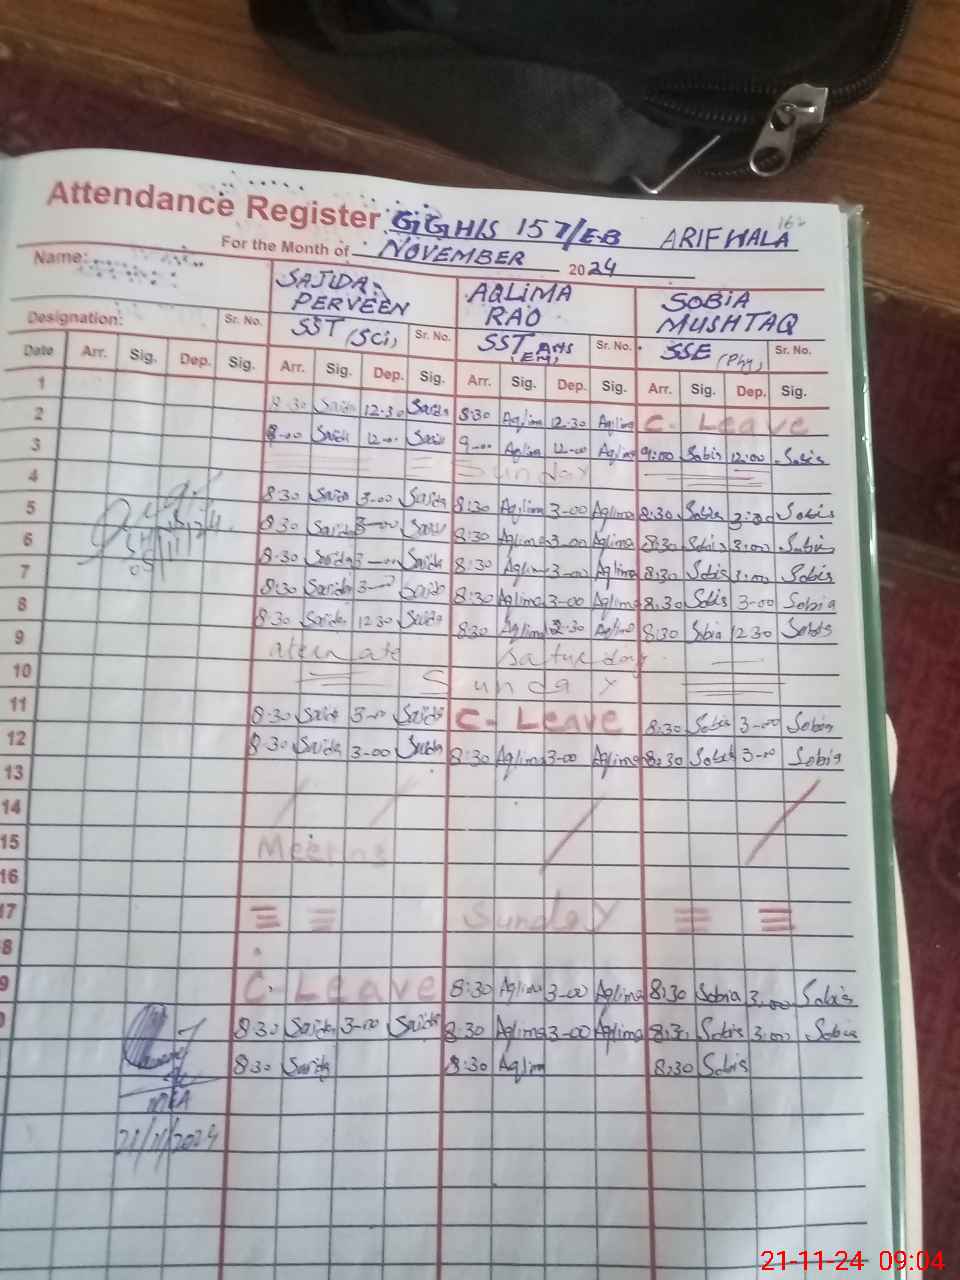 Attendance Register GGHIS 157/E-B ARIFWALA
162
For the Month of NOVEMBER 2024
Name: SAJIDA PERVEEN AQLIMA RAO SOBIA MUSHTAQ
Designation: Sr. No. SST (Sci) Sr. No. SST Sr. No. SSE (Phy) Sr. No.
Date Arr. Sig. Dep. Sig. Arr. Sig. Dep. Sig. Arr. Sig. Dep. Sig. Arr. Sig. Dep. Sig.
1 8:30 Sajida 12-30 Sajida 8:30 Aqlima 12-30 Aqlima C- Leave
2 8-00 Sajida 12-00 Sajida 9-00 Aqlima 12-00 Aqlima 9:00 Sobia 12:00 Sobia
3 Sunday
4 8:30 Sajida 3-00 Sajida 8:30 Aqlima 3-00 Aqlima 8:30 Sobia 3:00 Sobia
5 8:30 Sajida 3-00 Sajida 8:30 Aqlima 3-00 Aqlima 8:30 Sobia 3:00 Sobia
6 8:30 Sajida 3-00 Sajida 8:30 Aqlima 3-00 Aqlima 8:30 Sobia 3:00 Sobia
7 8:30 Sajida 3-00 Sajida 8:30 Aqlima 3-00 Aqlima 8:30 Sobia 3-00 Sobia
8 8:30 Sajida 1230 Sajida 8:30 Aqlima 12-30 Aqlima 8:30 Sobia 1230 Sobia
9 alternate Saturday
10 Sunday
11 8:30 Sajida 3-00 Sajida C- Leave 8:30 Sobia 3-00 Sobia
12 8-30 Sajida 3-00 Sajida 8:30 Aqlima 3-00 Aqlima 8:30 Sobia 3-00 Sobia
13
14
15 Meeting
16
17 Sunday
8
9 C- Leave 8:30 Aqlima 3-00 Aqlima 8:30 Sobia 3:00 Sobia
8:30 Sajida 3-00 Sajida 8:30 Aqlima 3-00 Aqlima 8:30 Sobia 3:00 Sobia
8:30 Sajida 8:30 Aqlima 8:30 Sobia
MEA
21/11/2024
21-11-24 09:04